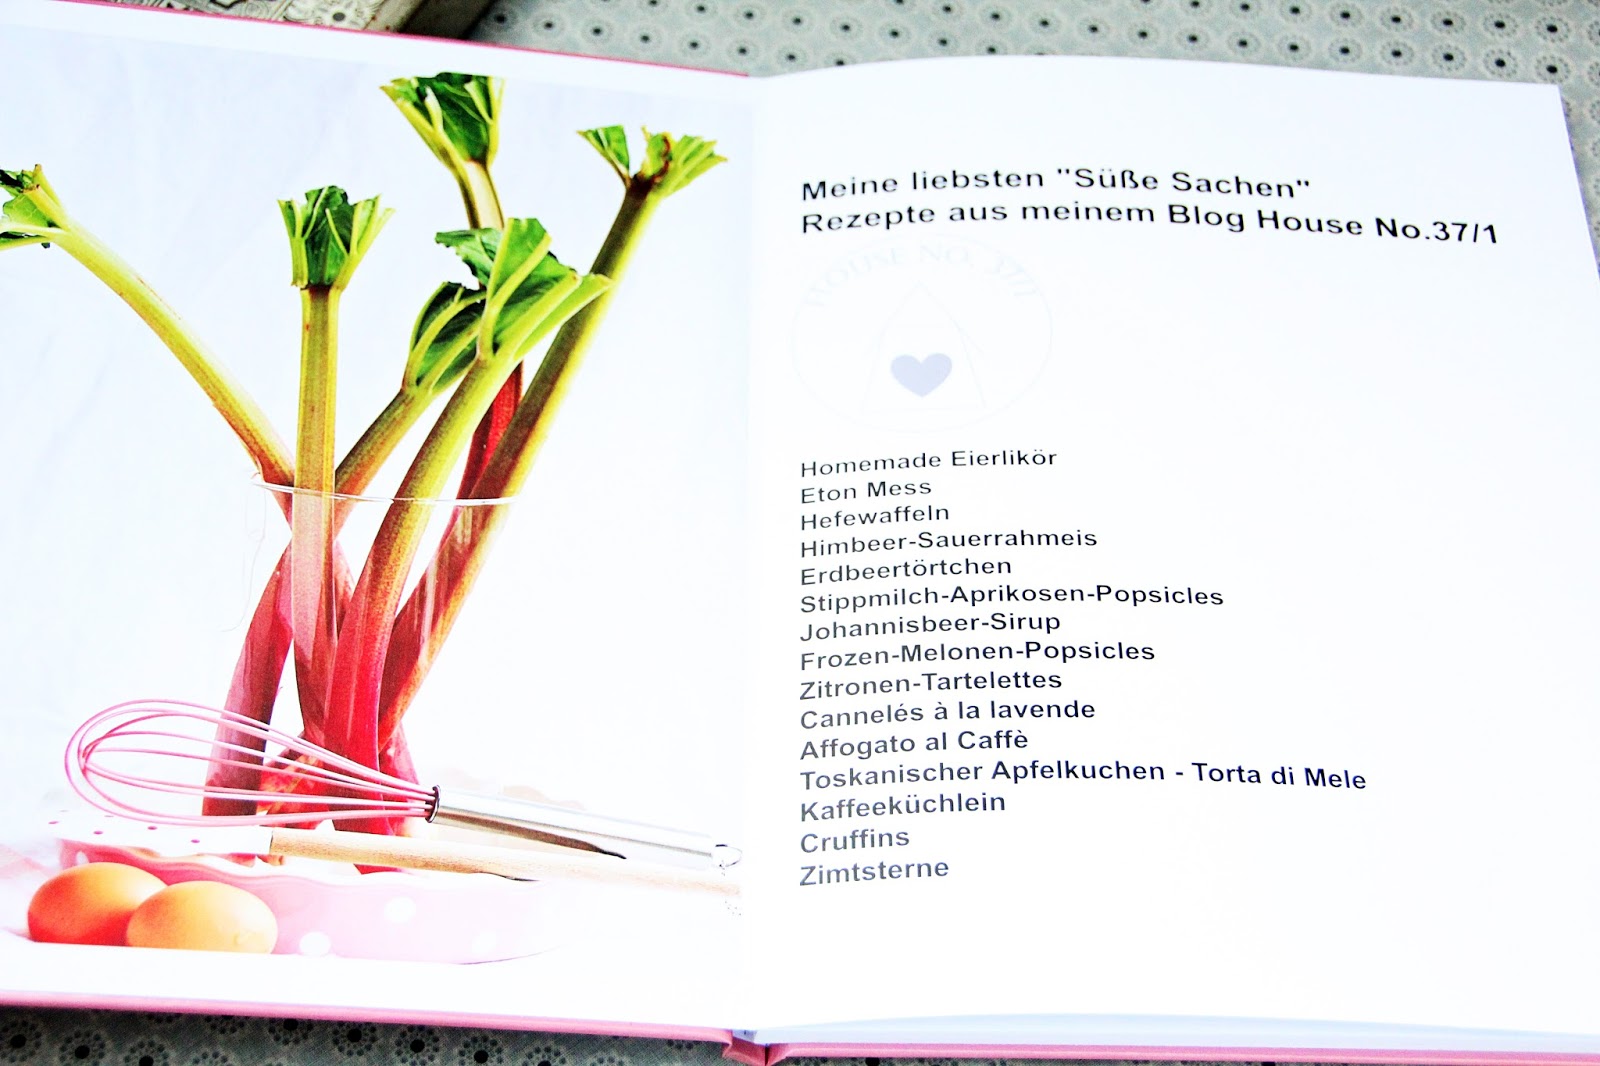 Meine liebsten "Süße Sachen"
Rezepte aus meinem Blog House No.37/1
HOUSE NO. 37/1
Homemade Eierlikör
Eton Mess
Hefewaffeln
Himbeer-Sauerrahmeis
Erdbeertörtchen
Stippmilch-Aprikosen-Popsicles
Johannisbeer-Sirup
Frozen-Melonen-Popsicles
Zitronen-Tartelettes
Cannelés à la lavende
Affogato al Caffè
Toskanischer Apfelkuchen - Torta di Mele
Kaffeeküchlein
Cruffins
Zimtsterne